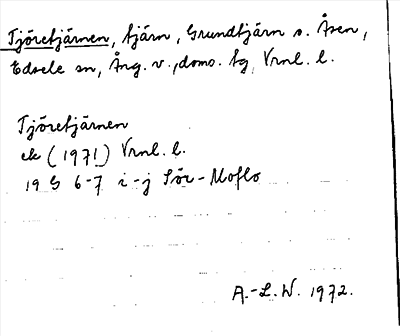 Tjöretjärnen, tjärn, Grundtjärn s. Åsen,
Edsele sn, Ång. v., doms. tg, Vrnl. l.
Tjöretjärnen
ek (1971) Vrnl. l.
19 G 6-7 i-j Sör-Moflo
A.-L. W. 1972.